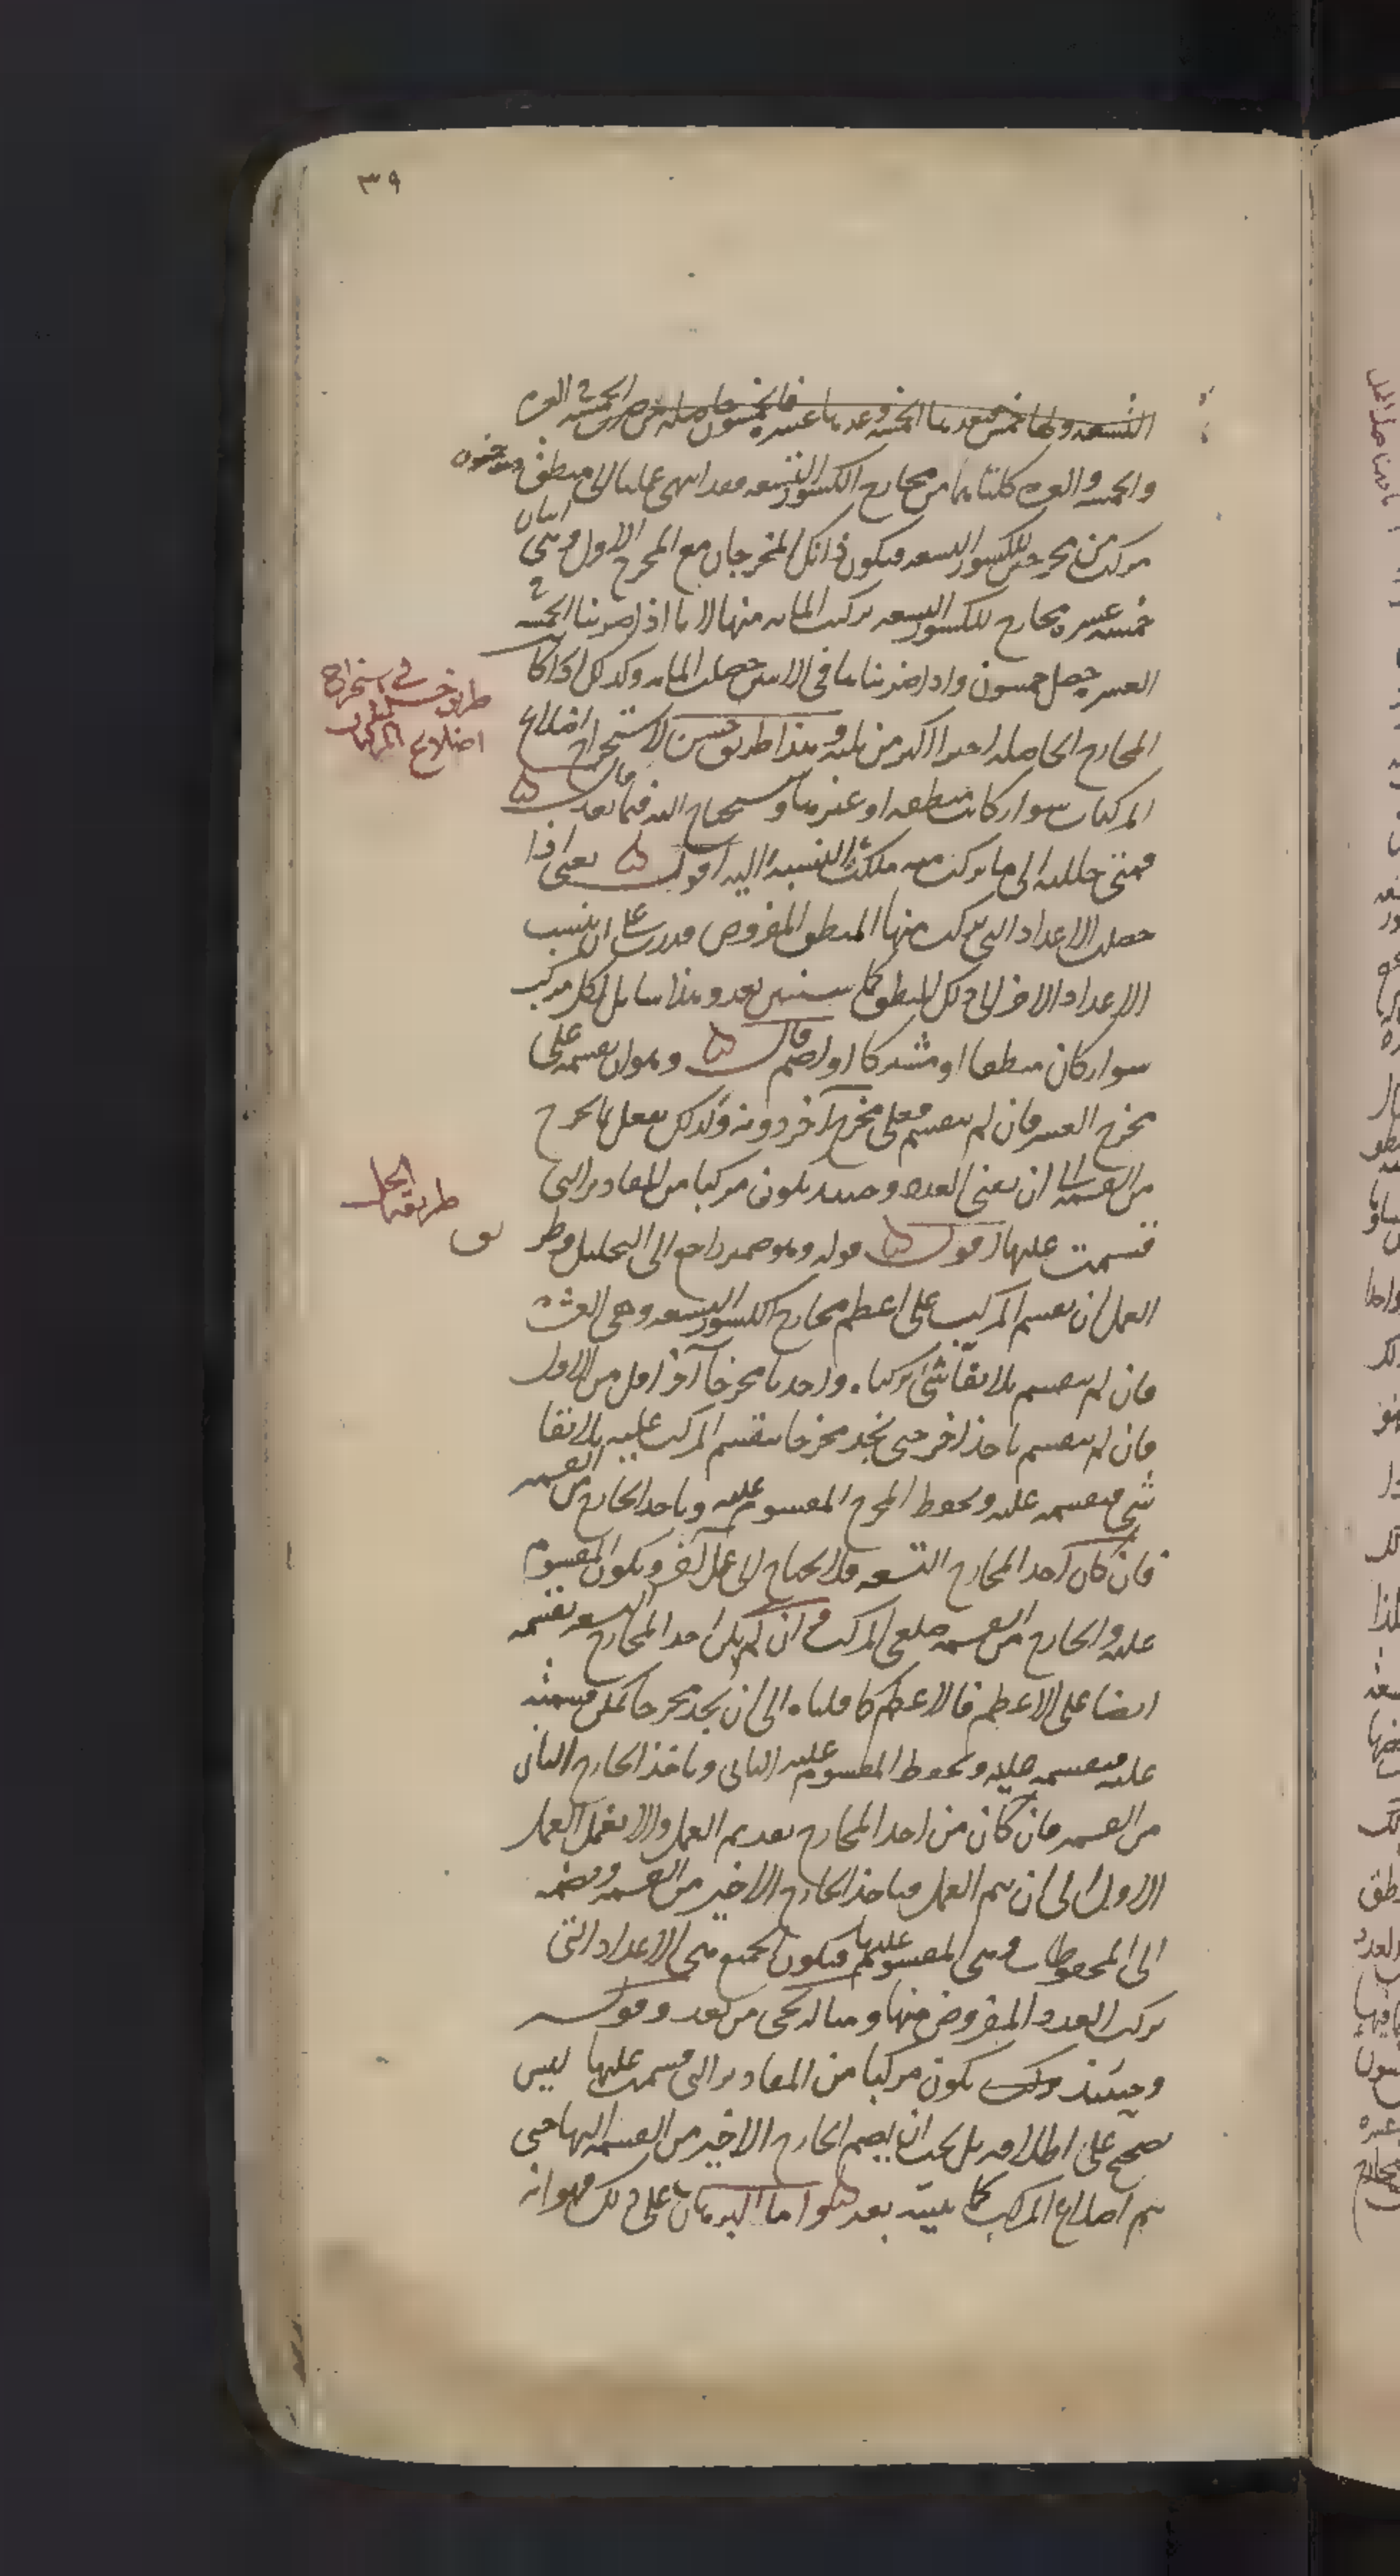 ٣٩
التسعه ولها خمس فيعدها الخمسه وعددها عشره فالخمسون حاصله من ضرب الخمسه في العشره
والخمسه والعشره كلتاهما من مخارج الكسور التسعه فقد انتهى عملنا الى منطق وهو خمسون
مركب من مخرجين للكسور التسعه فيكون ذانك المخرجان مع المخرج الاول وهي اثنان
خمسه عشره مخارج للكسور التسعه تركبت المائه منها لانا اذا ضربنا الخمسه في
العشره حصل خمسون واذا ضربناها في الاثنين حصلت المائه وكذلك اذا كان
المخارج الحاصله اخيرا اكثر من ثلثه وهذا طريق حسن لاستخراج اضلاع
المركبات سواء كانت منطقه او غيرها وسيحتاج اليه فيما بعد قال
فمتى حللته الى ما تركب منه ملكت النسبة اليه اقول يعني اذا
حصلت الاعداد التي تركب منها المنطق المفروض قدرت على ان تنسب
الاعداد الاخر الى ذلك المنطق كما سنبين بعد وهذا شامل لكل مركب
سواء كان منطقا او مشتركا او اصم قال وهو ان تقسمه على
مخرج العشر فان لم ينقسم فعلى مخرج آخر دونه وكذلك تفعل بما يخرج
من القسمه الى ان يفنى العدد وحينئذ يكون مركبا من المقادير التي
قسمت عليها اقول قوله وهو ضمير راجع الى التحليل وطريق
العمل ان تقسم المركب على اعظم مخارج الكسور التسعه وهي العشره
فان لم ينقسم بلا بقآ شئ تركناه واخذنا مخرجا آخر اقل من الاول
فان لم ينقسم ناخذ اخر حتى نجد مخرجا ينقسم المركب عليه بلا بقا
شي فنقسمه عليه ونحفظ المخرج المقسوم عليه وناخذ الخارج من القسمه
فان كان احد المخارج التسعه فلا نحتاج الى عمل آخر ويكون المقسوم
عليه والخارج من القسمه ضلعي المركب وان لم يكن احد المخارج التسعه نقسمه
ايضا على الاعظم فالاعظم كما قلناه الى ان نجد مخرجا يمكن قسمته
عليه فنقسمه عليه ونحفظ المقسوم عليه الثاني وناخذ الخارج الثاني
من القسمه فان كان من احد المخارج فقد تم العمل والا نعمل العمل
الاول الى ان يتم العمل فناخذ الخارج الاخير من القسمه ونضمه
الى المحفوظات وهي المقسوم عليها فيكون الجميع هي الاعداد التي
تركب العدد المفروض منها ومثاله يجئ من بعد وقوله
وحينئذ يكون مركبا من المقادير التي قسمت عليها ليس
بصحيح على اطلاقه بل يجب ان يضم الخارج الاخير من القسمه اليها حتى
يتم اضلاع المركب كما نبينه بعد واما البرهان على ذلك فهو انه
طريق حسن في استخراج
اضلاع المركبات
طريقة الحل